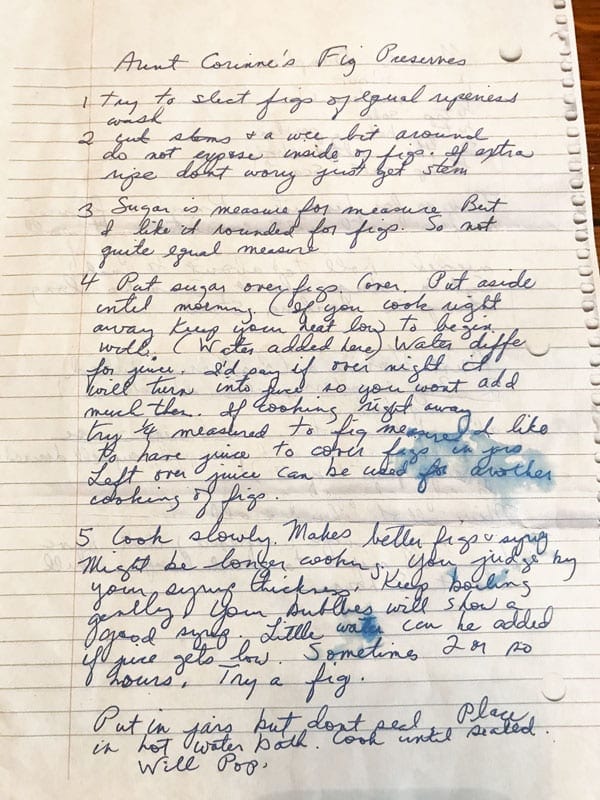 Aunt Corinne's Fig Preserves
1 try to slect figs of equal ripeness
wash
2 cut stems & a wee bit around
do not expose inside of figs. If extra
ripe dont worry just get stem
3 Sugar is measure for measure But
I like it rounded for figs. So not
quite equal measure
4 Put sugar over figs. Cover. Put aside
until morning. (If you cook right
away keep your heat low to begin
with. (Water added here) Water diffe
for juice. I'd say if over night it
will turn into juice so you wont add
much then. If cooking right away
try 1/4 measured to fig measured I like
to have juice to cover figs in jars
Left over juice can be used for another
cooking of figs.
5 Cook slowly. Makes better figs & syrup
Might be longer cooking. You judge by
your syrup thickness. Keep boiling
gently. Your bubbles will show a
good syrup. Little water can be added
if juice gets low. Sometimes 2 or so
hours. Try a fig.
Put in jars but dont seal. Place
in hot water bath. Cook until sealed.
Will Pop.